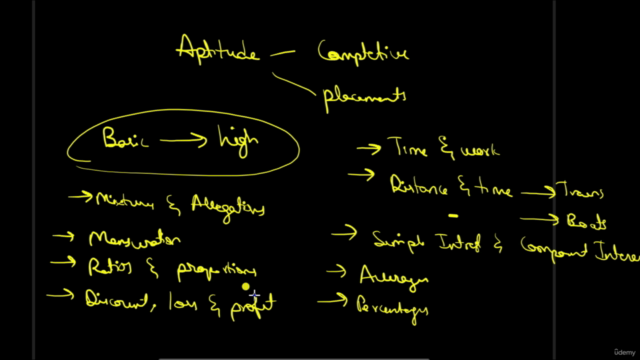 Aptitude — Competitive
placements
Basic → high
→ Mixtures & Allegations
→ Mensuration
→ Ratios & proportions
→ Discount, loss & profit
→ Time & work
→ Distance & time → Trains
→ Boats
→ Simple Intrst & Compound Interes
→ Averages
→ Percentages
ûdemy